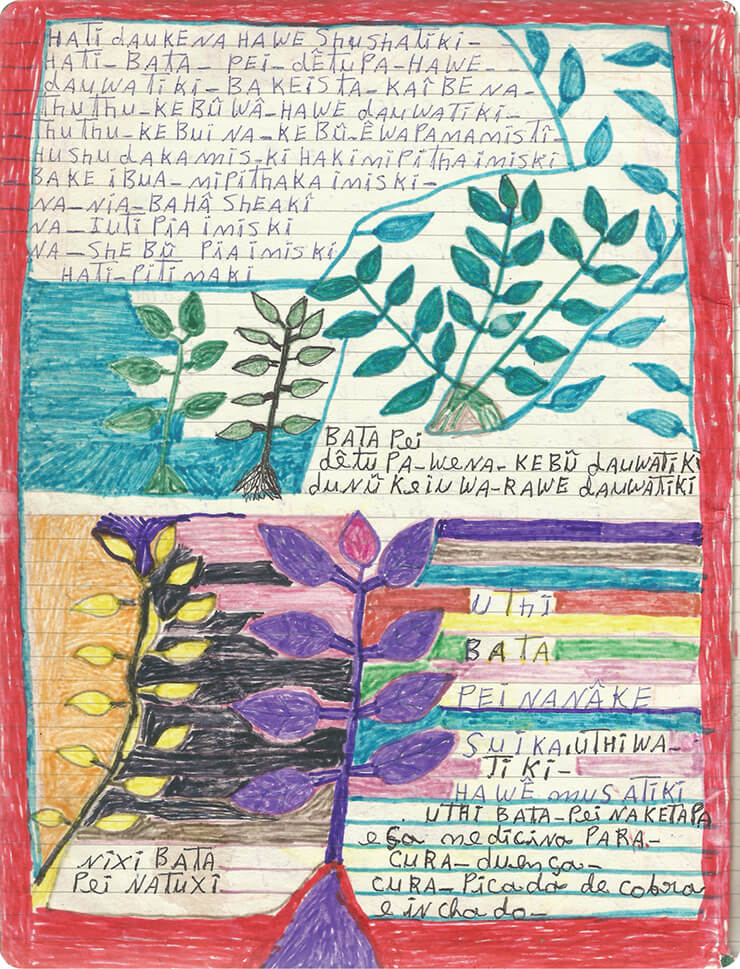 HATI dAUKENA HAWE ShushATIKI-
HATI-BATA-PEI-dÊTUPA-HAWE-
dAUWATIKI-BAKEISTA-KAÎBENA-
ThuThu-KEBÛWÂ-HAWE dAUWATIKI-
ThuThu-KEBUINA-KEBÛ-ÊWAPAMAMISTÎ-
HUShUdAKAMIS-KI HAKIMIPITHAIMISKI
BAKE IBUA-MIPITHAKAIMISKI-
NA-NIA-BAHÂSHEAKÎ
NA-IUTI PIA IMISKI
NA-SHEBÛ PIA IMISKI
HATI-PITIMAKI
BATA Pei
dêtu PA-weNA-KEBÛ dAUWATIKI
duNÛ KeiuWA-RAWE dAUWATIKI
UThÎ
BATA
PEINANÂKE
SUIKA, UTHIWA-
TIKI-
HAWÊ MUSATIKI
UTHI BATA-PeiNAKETAPA
eÇa medicina PARA-
CURA-duença-
CURA-Picada de cobra
e inchado-
NIXI BATA
PEI NATUXI